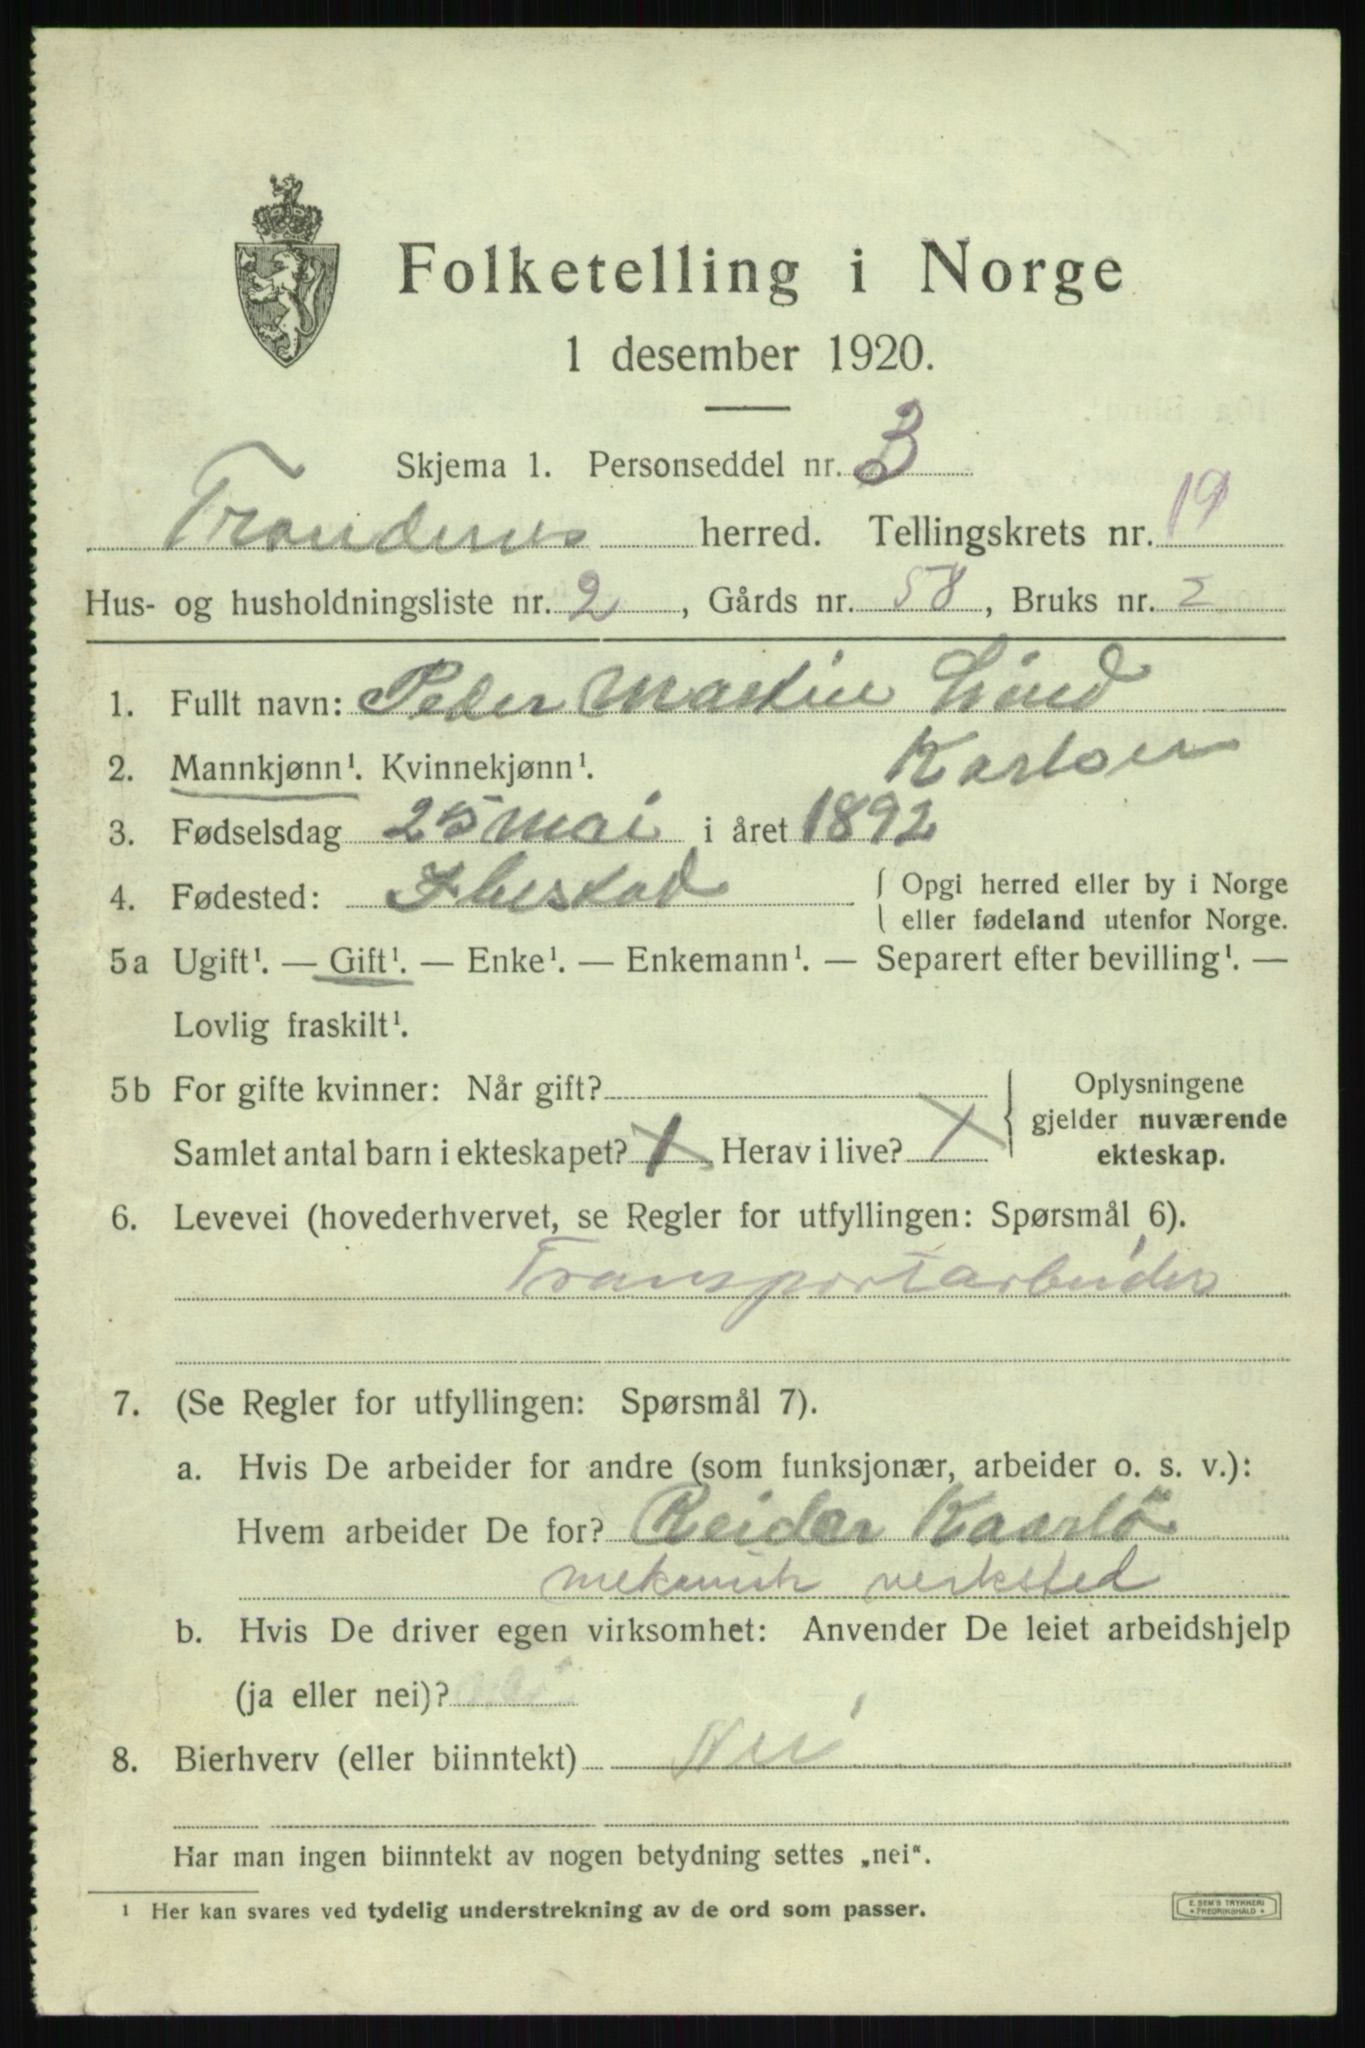 Folketelling i Norge
1 desember 1920.
Skjema 1. Personseddel nr. 3
Trondenes herred. Tellingskrets nr. 19
Hus- og husholdningsliste nr. 2, Gårds nr. 58, Bruks nr. 2
1. Fullt navn: Peder Martin Lind
Karlsen
2. Mannkjønn¹. Kvinnekjønn¹.
3. Fødselsdag 25 Mai i året 1892
4. Fødested: Ibestad { Opgi herred eller by i Norge
eller fødeland utenfor Norge.
5a Ugift¹. — Gift¹. — Enke¹. — Enkemann¹. — Separert efter bevilling¹. —
Lovlig fraskilt¹.
5b For gifte kvinner: Når gift?
Samlet antal barn i ekteskapet? 1 Herav i live?
{ Oplysningene
gjelder nuværende
ekteskap.
6. Levevei (hovederhvervet, se Regler for utfyllingen: Spørsmål 6).
Transportarbeider
7. (Se Regler for utfyllingen: Spørsmål 7).
a. Hvis De arbeider for andre (som funksjonær, arbeider o. s. v.):
Hvem arbeider De for? Reidar Kaarbö
mekanisk verksted
b. Hvis De driver egen virksomhet: Anvender De leiet arbeidshjelp
(ja eller nei)? nei
8. Bierhverv (eller biinntekt) Nei
Har man ingen biinntekt av nogen betydning settes „nei“.
¹ Her kan svares ved tydelig understrekning av de ord som passer.
E. SEM'S TRYKKERI
• FREDRIKSHALD •